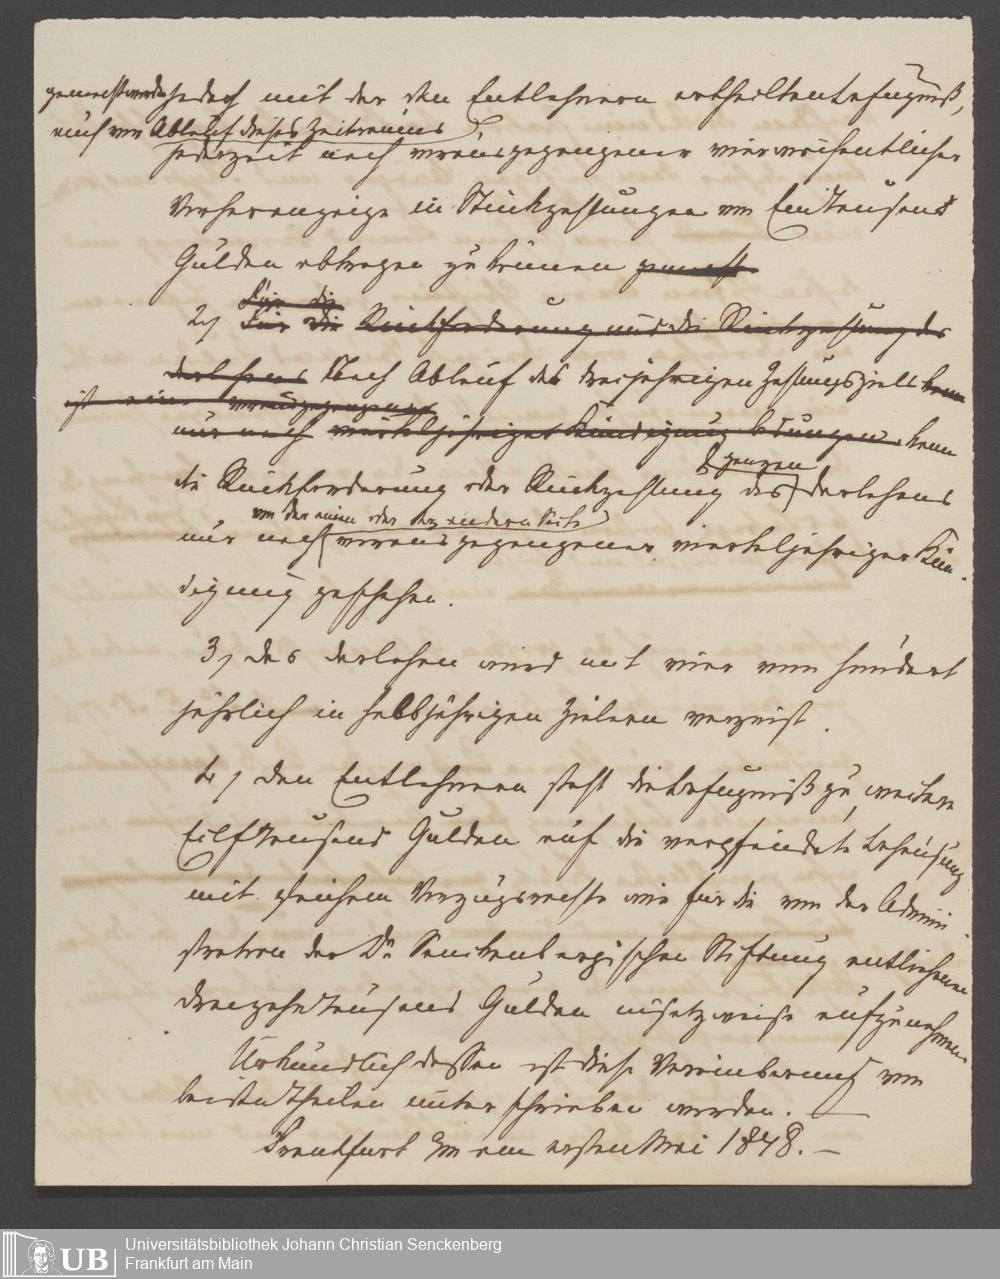 gemacht werden jedoch mit der den Entlehnern ertheilten Befugniß,
auch vor Ablauf dieses Zeitraums
jederzeit nach vorausgegangener vierwöchentlicher
Vorheranzeige in Stückzahlungen von Eintausend
Gulden abtragen zu können gemacht
Für die
2, Für die Rückforderung und die Rückzahlung des
Darlehens Nach Ablauf des dreijährigen Zahlungsziels kann
ist eine vorausgegangene
nur nach vierteljähriger Kündigung kann
die Rückforderung oder Rückzahlung des Darlehens
ganzen
von der einen oder der andern Seite
nur nach vorausgegangener vierteljähriger Kün-
digung geschehen.
3, Das Darlehen wird mit vier vom hundert
jährlich in halbjährigen Zielern verzinst.
4, Den Entlehnern steht die Befugniß zu, weitere
Eilftausend Gulden auf die verpfändete Behausung
mit gleichem Vorzugsrechte wie für die von der Admini-
stration der Dr. Senckenbergischen Stiftung entliehenen
dreyzehntausend Gulden insatzweise aufzunehmen.
Urkundlich dessen ist diese Vereinbarung von
beiden Theilen unterschrieben worden. —
Frankfurt am ersten Mai 1848. —
UB
Universitätsbibliothek Johann Christian Senckenberg
Frankfurt am Main